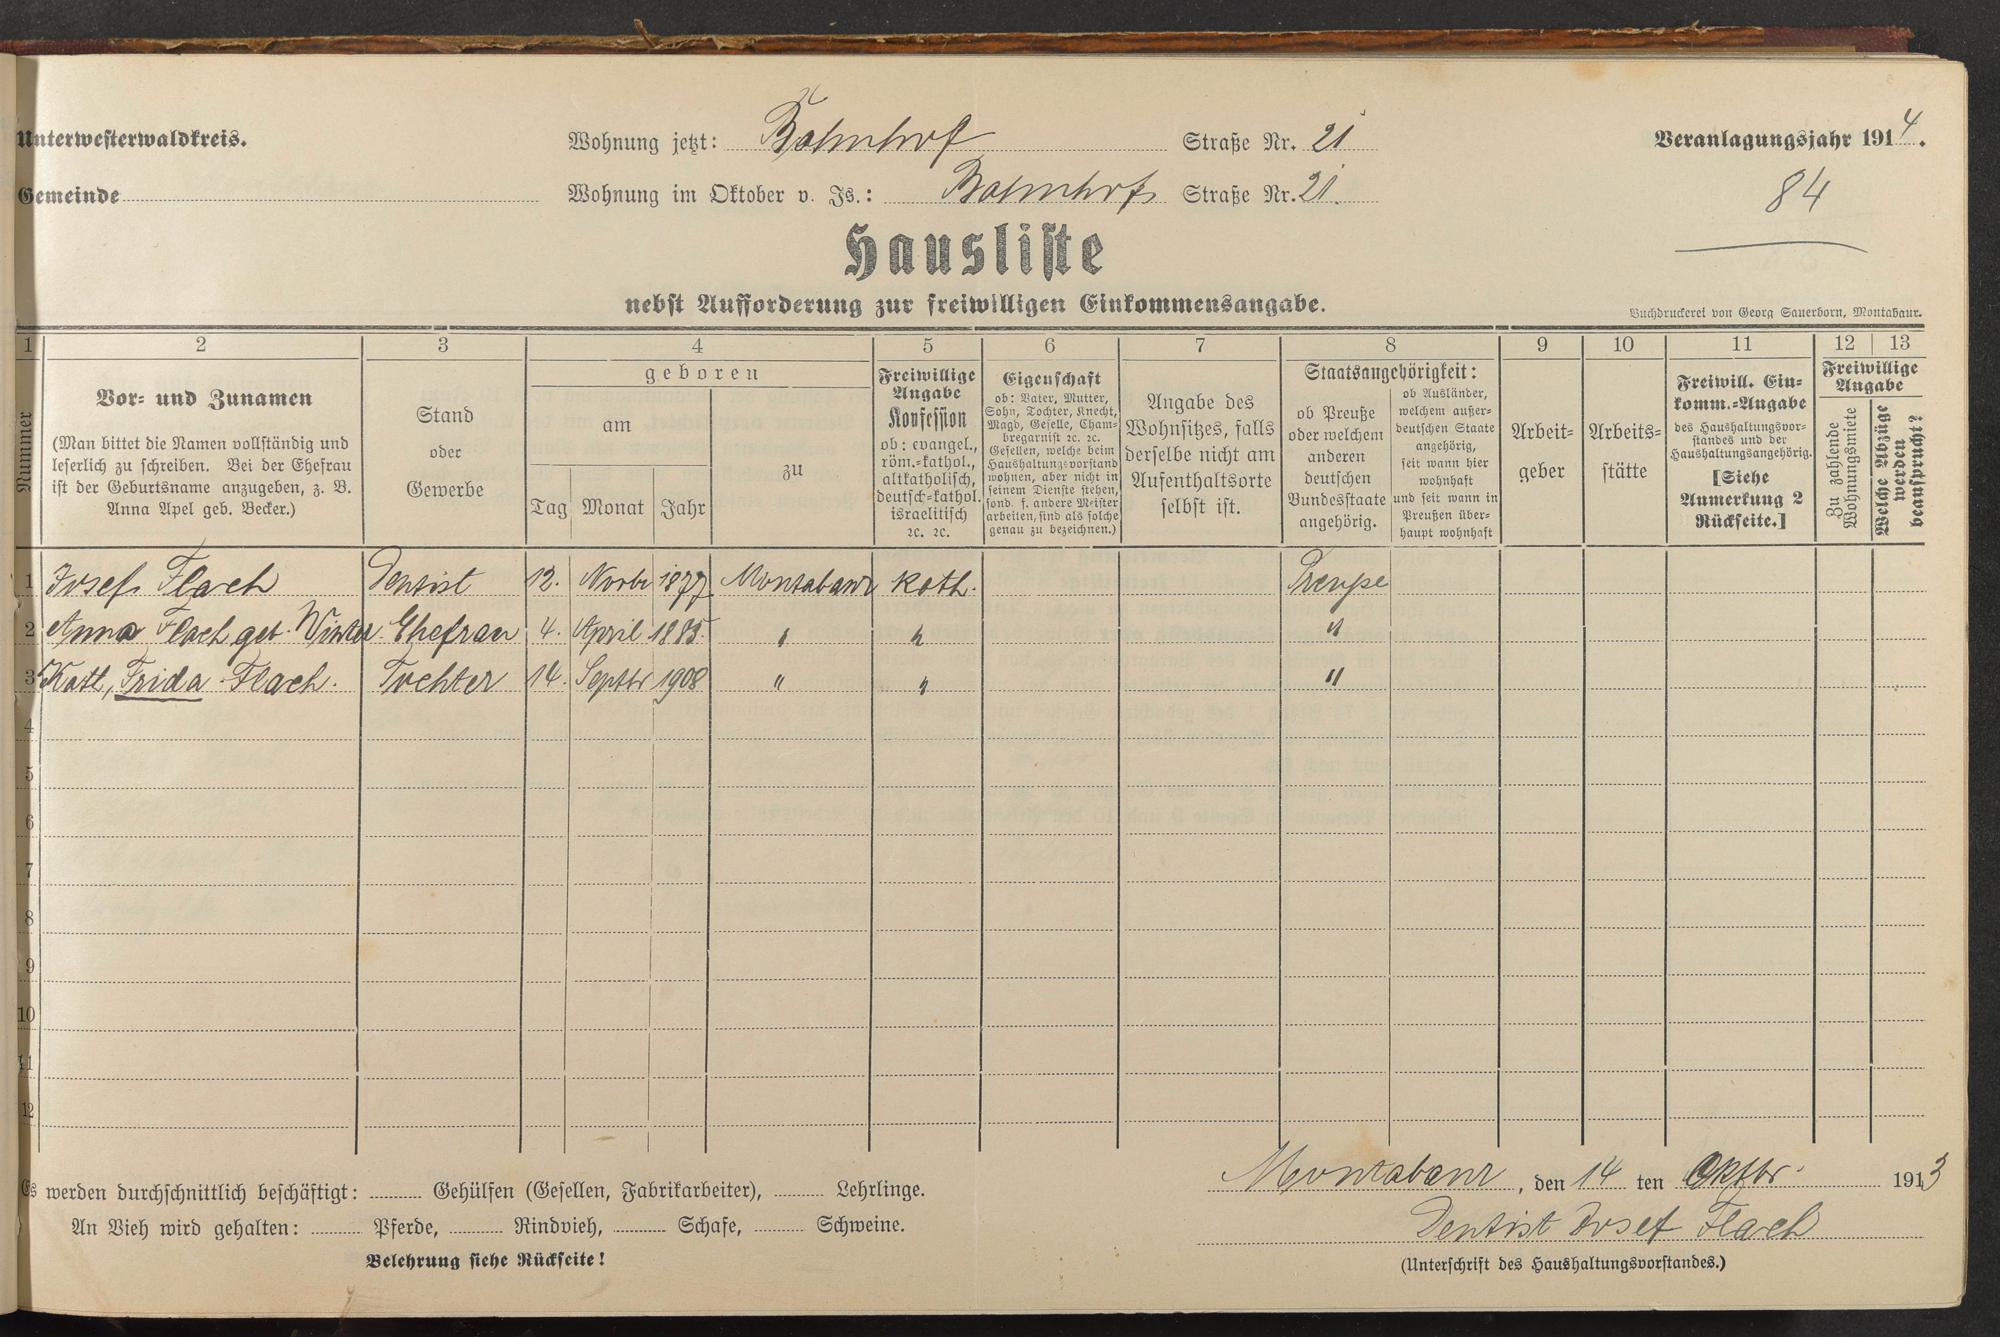 Unterwesterwaldkreis.
Wohnung jetzt: Bahnhof Straße Nr. 21
Veranlagungsjahr 1914.
Gemeinde
Wohnung im Oktober v. Js.: Bahnhof Straße Nr. 21.
84
Hausliste
nebst Aufforderung zur freiwilligen Einkommensangabe.
Buchdruckerei von Georg Sauerborn, Montabaur.
1 2 3 4 5 6 7 8 9 10 11 12 13
Nummer
Vor- und Zunamen
(Man bittet die Namen vollständig und
leserlich zu schreiben. Bei der Ehefrau
ist der Geburtsname anzugeben, z. B.
Anna Apel geb. Becker.)
Stand
oder
Gewerbe
geboren
am
Tag Monat Jahr
zu
Freiwillige
Angabe
Konfession
ob: evangel.,
röm.-kathol.,
altkatholisch,
deutsch-kathol.
israelitisch
ꝛc. ꝛc.
Eigenschaft
ob: Vater, Mutter,
Sohn, Tochter, Knecht,
Magd, Geselle, Cham-
bregarnist ꝛc. ꝛc.
Gesellen, welche beim
Haushaltungsvorstand
wohnen, aber nicht in
seinem Dienste stehen,
sond. f. andere Meister
arbeiten, sind als solche
genau zu bezeichnen.)
Angabe des
Wohnsitzes, falls
derselbe nicht am
Aufenthaltsorte
selbst ist.
Staatsangehörigkeit:
ob Preuße
oder welchem
anderen
deutschen
Bundesstaate
angehörig.
ob Ausländer,
welchem außer-
deutschen Staate
angehörig,
seit wann hier
wohnhaft
und seit wann in
Preußen über-
haupt wohnhaft
Arbeit-
geber
Arbeits-
stätte
Freiwill. Ein-
komm.-Angabe
des Haushaltungsvor-
standes und der
Haushaltungsangehörig.
[Siehe
Anmerkung 2
Rückseite.]
Freiwillige
Angabe
Zu zahlende
Wohnungsmiete
Welche Abzüge
werden
beansprucht?
1 Josef Flach Dentist 12. Novbr 1877 Montabaur kath. Preuße
2 Anna Flach geb. Winter Ehefrau 4. April 1885 " " "
3 Kath, Frida Flach. Tochter 14. Septbr 1908 " " "
4
5
6
7
8
9
10
11
12
Es werden durchschnittlich beschäftigt: Gehülfen (Gesellen, Fabrikarbeiter), Lehrlinge.
Montabaur, den 14 ten Oktbr. 1913
An Vieh wird gehalten: Pferde, Rindvieh, Schafe, Schweine.
Dentist Josef Flach
Belehrung siehe Rückseite!
(Unterschrift des Haushaltungsvorstandes.)